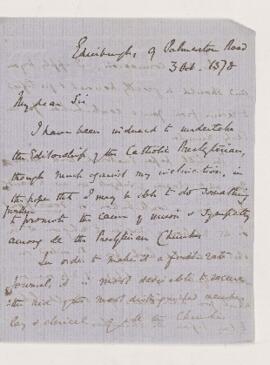 Edinburgh, 9 Palmerston Road
3 Oct. 1878
My dear Sir
I have been induced to undertake
the Editorship of the Catholic Presbyterian,
though much against my inclination, in
the hope that I may be able to do something
to promote the cause of union & sympathy
among all the Presbyterian Churches
In order to make it a first-rate
Journal, it is most desirable to secure
the aid of the most distinguished members
lay & clerical, of all the Churches